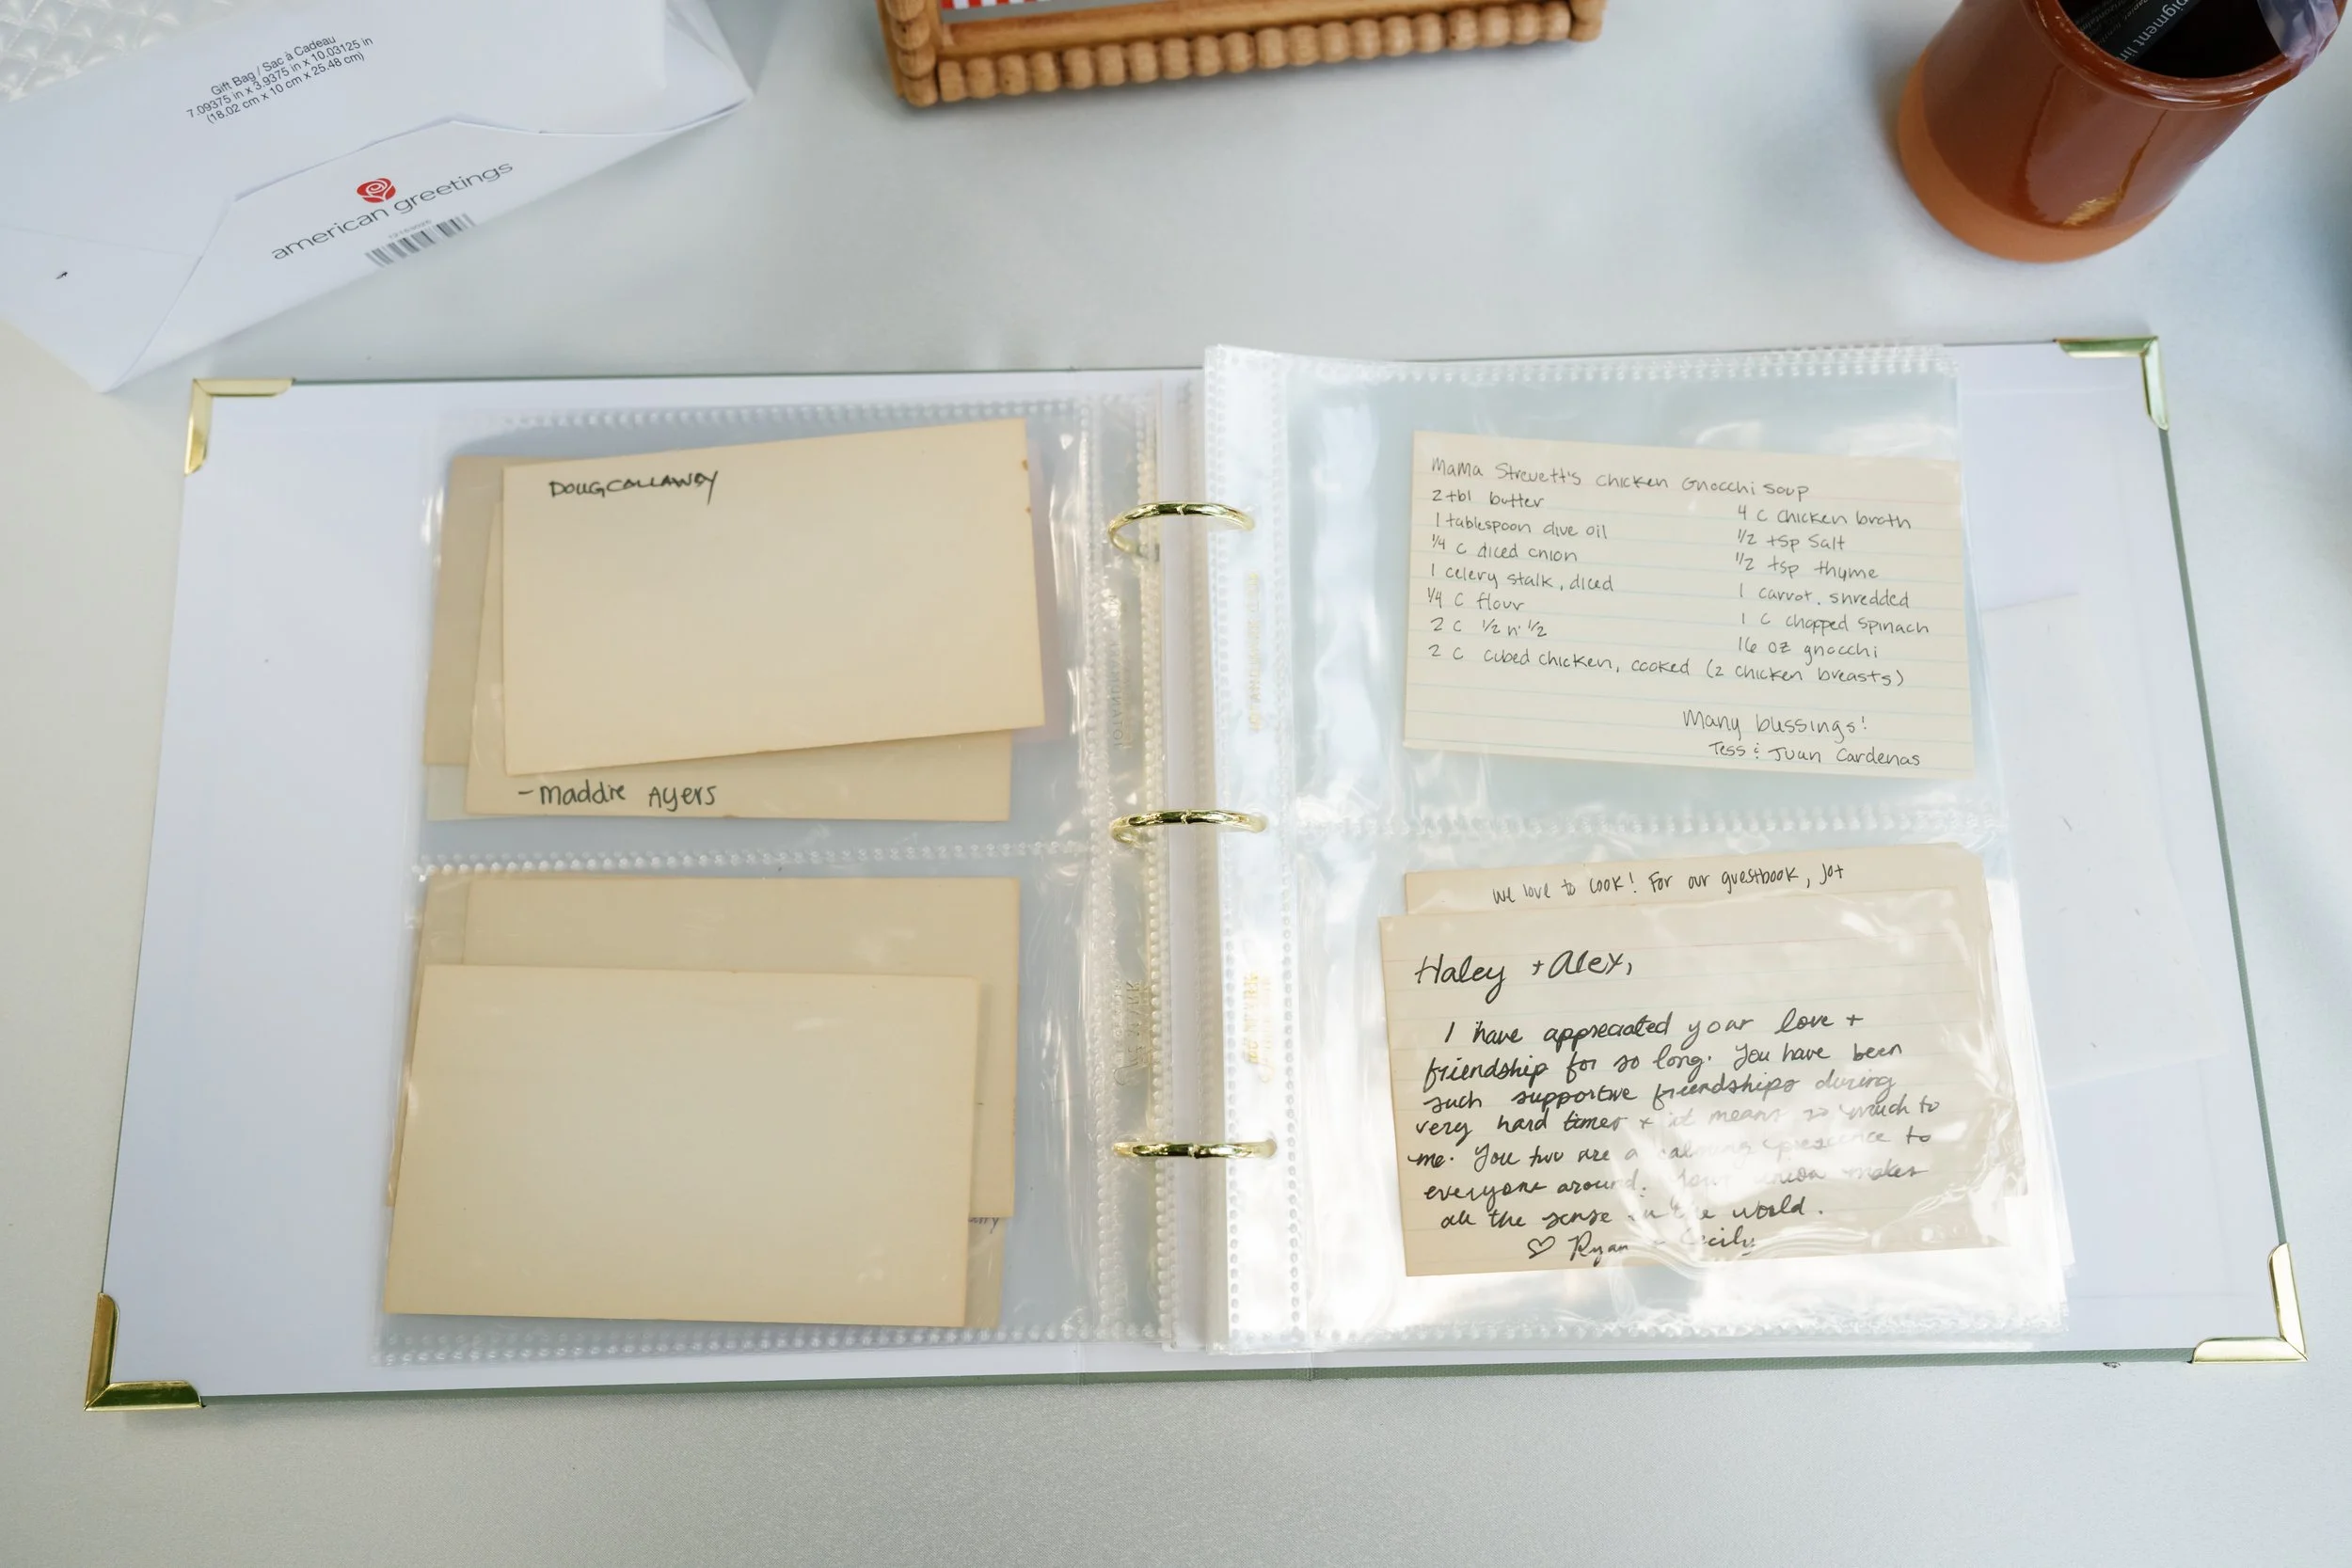 Gift Bag / Sac à Cadeau
7.09375 in x 3.9375 in x 10.03125 in
(18.02 cm x 10 cm x 25.48 cm)
american greetings
pigment lin
DOUG CALLAWAY
- Maddie Ayers
Mama Strevett's Chicken Gnocchi Soup
2 tbl butter
1 tablespoon olive oil
1/4 C diced onion
1 celery stalk, diced
1/4 C flour
2 C 1/2 n' 1/2
2 C cubed chicken, cooked (2 chicken breasts)
4 C chicken broth
1/2 tsp Salt
1/2 tsp thyme
1 carrot, shredded
1 C chopped spinach
16 oz gnocchi
Many blessings!
Tess & Juan Cardenas
We love to cook! For our guestbook, jot
Haley + Alex,
I have appreciated your love +
friendship for so long. You have been
such supportive friendships during
very hard times + it means so much to
me. You two are a calming presence to
everyone around. Your union makes
all the sense in the world.
♡ Ryan + Cecily